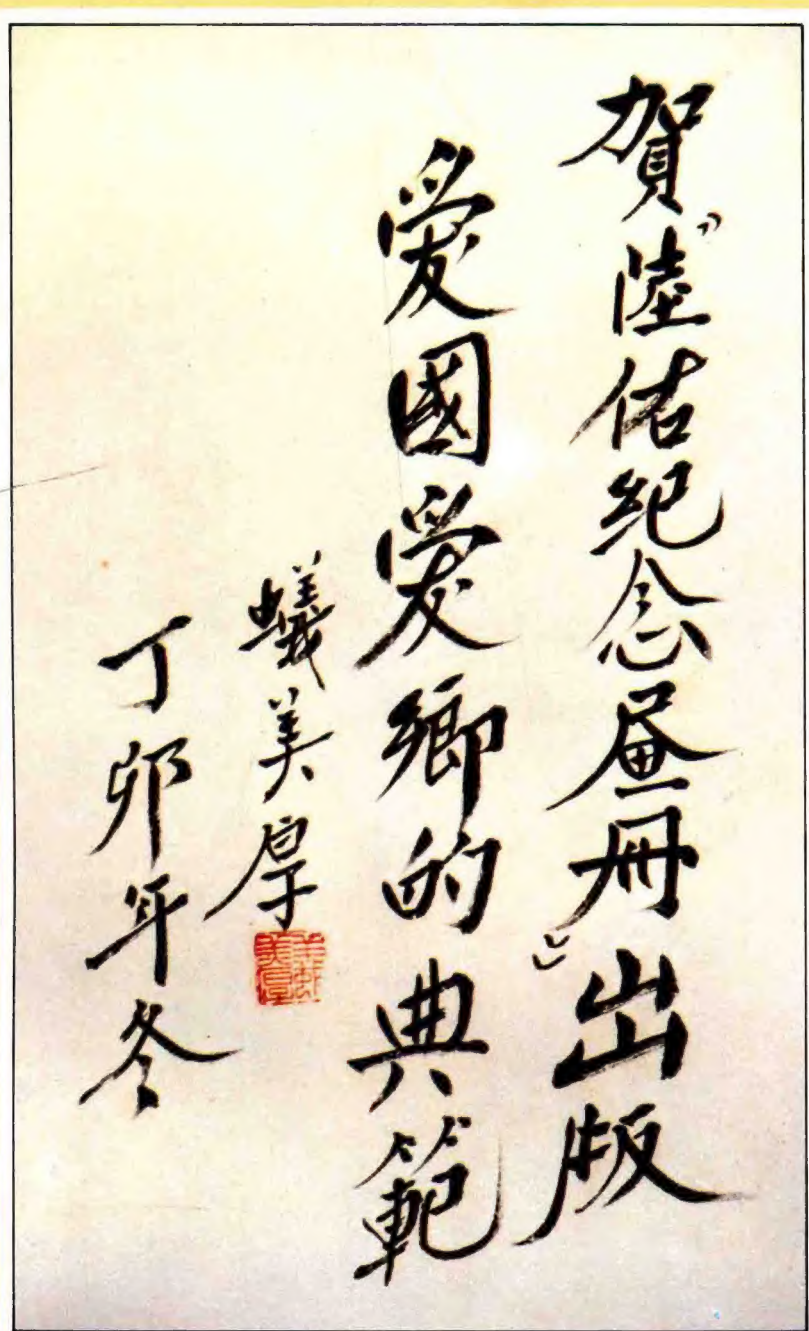 賀“陸佑紀念畫冊”出版
愛國愛鄉的典範
蟻美厚
丁卯年冬